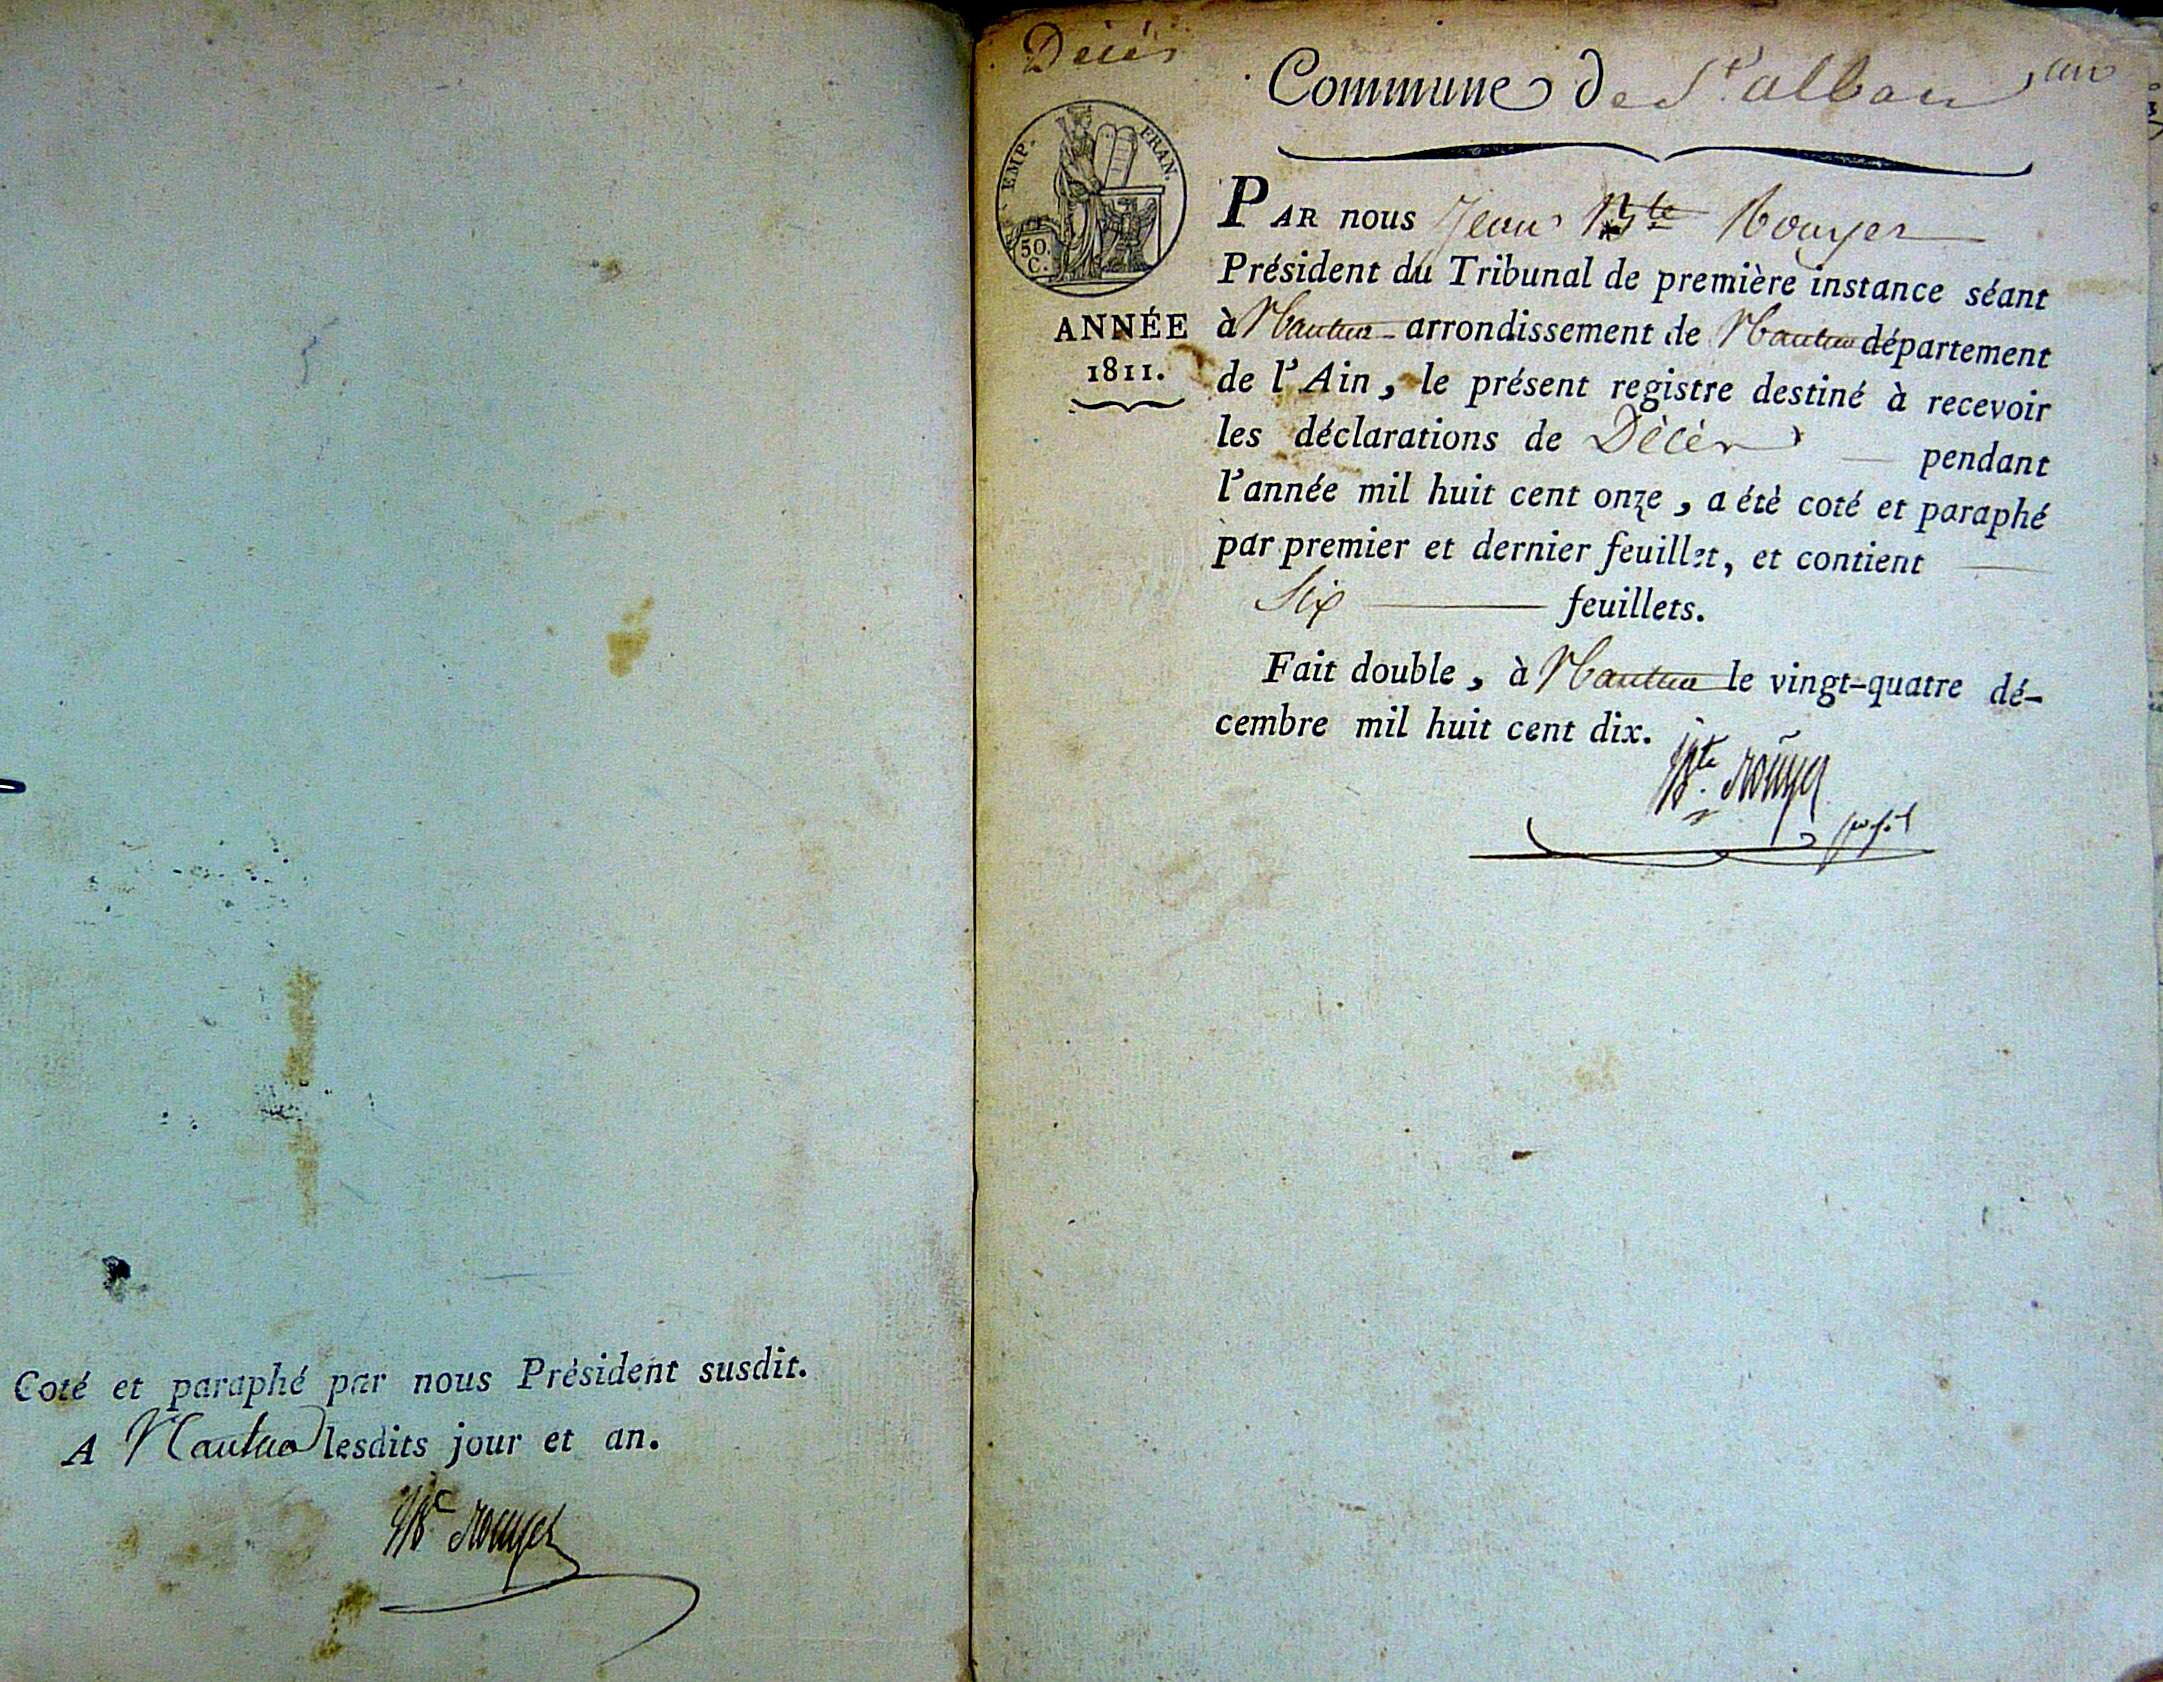 Coté et paraphé par nous Président susdit.
A Nantua lesdits jour et an.
Bte Rouyer
Décès
Commune de St. alban
EMP. FRAN.
50. C.
ANNÉE
1811.
PAR nous Jean Bte Rouyer
Président du Tribunal de première instance séant
à Nantua arrondissement de Nantua département
de l'Ain, le présent registre destiné à recevoir
les déclarations de Décès pendant
l'année mil huit cent onze, a été coté et paraphé
par premier et dernier feuillet, et contient
Six feuillets.
Fait double, à Nantua le vingt-quatre dé-
cembre mil huit cent dix.
Bte Rouyer